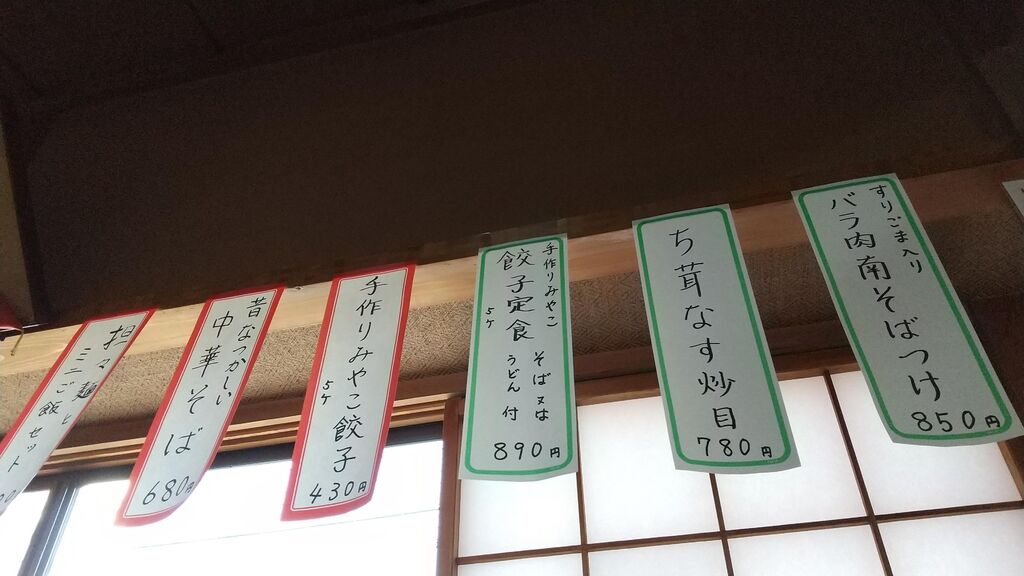 すりごま入り
バラ肉南そばつけ
850円
ち茸なす炒目
780円
手作りみやこ
餃子定食
5ケ
そば又は
うどん付
890円
手作りみやこ餃子
5ケ
430円
昔なつかしい
中華そば
680円
担々麺
ミニご飯と
セット